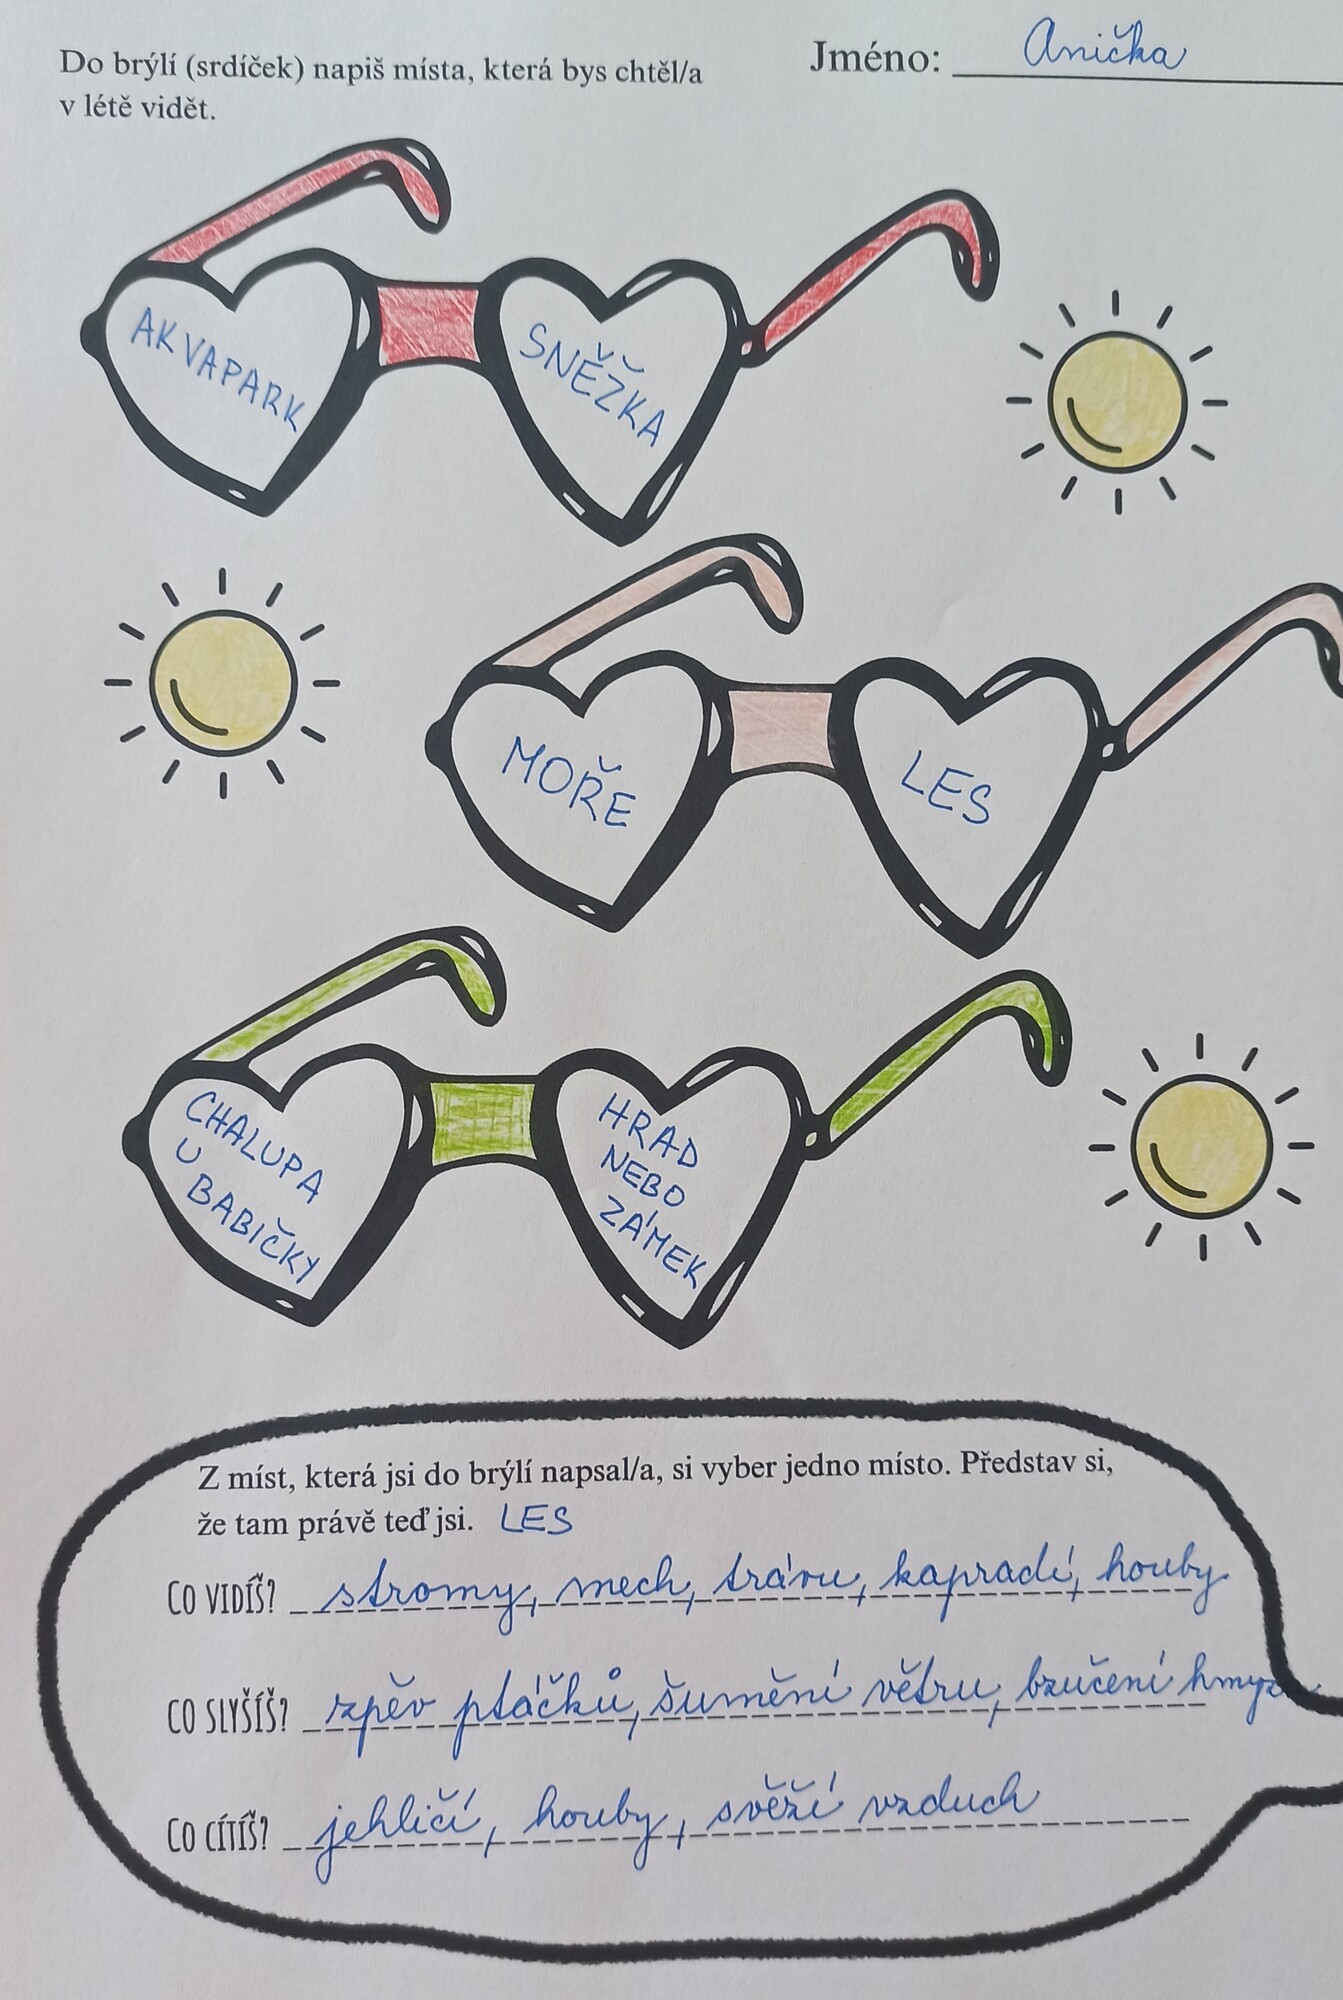 Do brýlí (srdíček) napiš místa, která bys chtěl/a
v létě vidět.
Jméno: Anička
AKVAPARK
SNĚŽKA
MOŘE
LES
CHALUPA
U
BABIČKY
HRAD
NEBO
ZÁMEK
Z míst, která jsi do brýlí napsal/a, si vyber jedno místo. Představ si,
že tam právě teď jsi. LES
CO VIDÍŠ? stromy, mech, trávu, kapradí, houby
CO SLYŠÍŠ? zpěv ptáčků, šumění větru, bzučení hmyzu
CO CÍTÍŠ? jehličí, houby, svěží vzduch